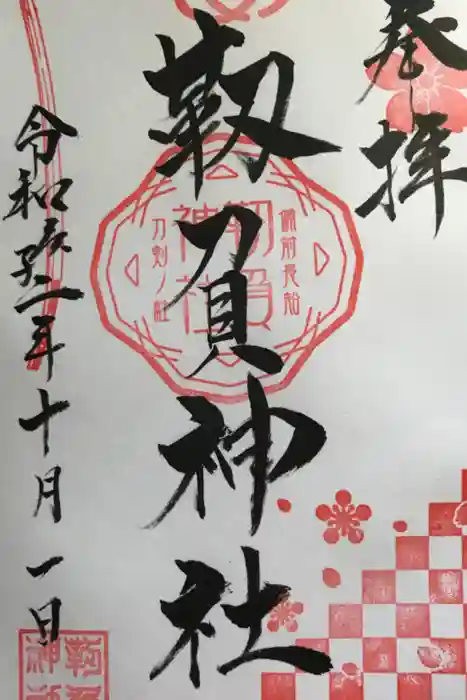 奉拝
靱負神社
備前長船
靱負
神社
刀剣ノ社
令和庚子二年十月一日
靱負
神社